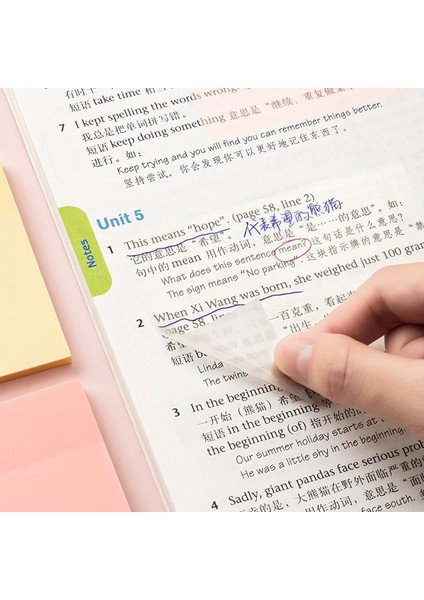 短语 take time
7 I kept spelling the words wrong.
我总是把单词拼写错。
短语 keep doing something 意思是“继续、重复做某
进行。如：
Keep trying and you will find you can remember things better.
坚持尝试，你会发现你可以更好地记住东西了。
Unit 5
Notes
1 This means “hope”. (page 58, line 2)
它的意思是“希望”。
句中的 mean 用作动词，意思是“是……的意思”。如：
What does this sentence mean? 这句话是什么意思？
The sign means “No parking”. 这块指示牌的意思是“禁
2 When Xi Wang was born, she weighed just 100 gram
(page 58, lin
一百克重，看起
短语 b
“出生
Linda
The twins
3 In the beginning
一开始（熊猫）希望
短语 in the beginning
the beginning (of) 指开始的
Our summer holiday starts at
He was a little shy in the beginning.
4 Sadly, giant pandas face serious prob
是，大熊猫在野外面临严重的
用作动词，意思是“面
face south.